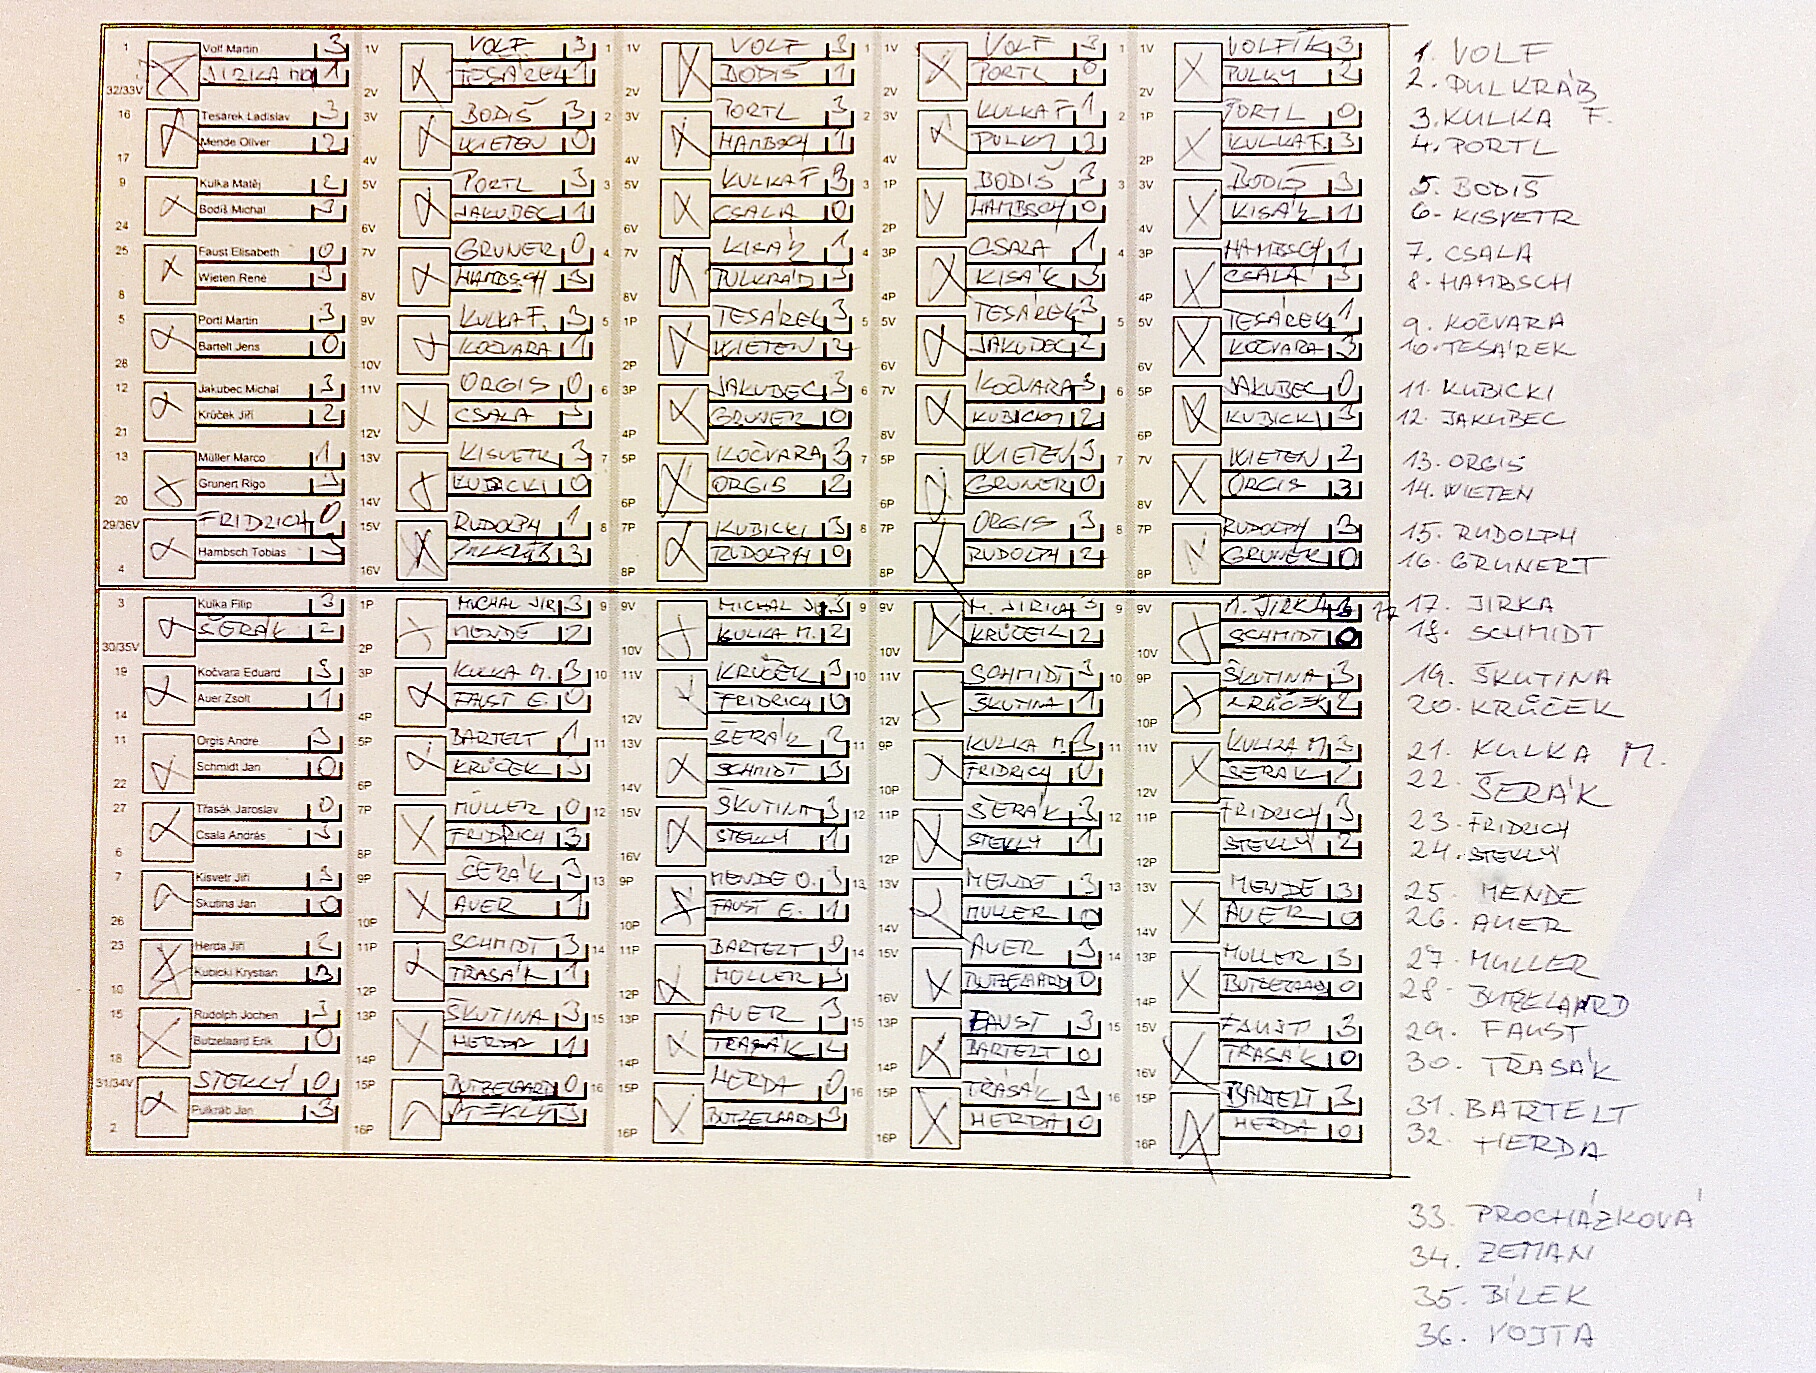 1 Volf Martin 3
32/33V JIRKA MI 1
16 Tesárek Ladislav 3
17 Mende Oliver 2
9 Kulka Matěj 2
24 Bodiš Michal 3
25 Faust Elisabeth 0
8 Wieten René 3
5 Portl Martin 3
28 Bartelt Jens 0
12 Jakubec Michal 3
21 Krůček Jiří 2
13 Müller Marco 1
20 Grunert Rigo 3
29/36V FRIDRICH 0
4 Hambsch Tobias 3
3 Kulka Filip 3
30/35V ŠERÁK 2
19 Kočvara Eduard 3
14 Auer Zsolt 1
11 Orgis Andre 3
22 Schmidt Jan 0
27 Třasák Jaroslav 0
6 Csala András 3
7 Kisvetr Jiří 3
26 Skutina Jan 0
23 Herda Jiří 2
10 Kubicki Krystian 3
15 Rudolph Jochen 3
18 Butzelaard Erik 0
31/34V STEKLÝ 0
2 Pulkráb Jan 3
1V VOLF 3 1
2V TESÁREK 1
3V BODIŠ 3 2
4V WIETEN 0
5V PORTL 3 3
6V JAKUBEC 1
7V GRUNER 0 4
8V HAMBSCH 3
9V KULKA F. 3 5
10V KOČVARA 1
11V ORGIS 0 6
12V CSALA 3
13V KISVETR 3 7
14V KUBICKI 0
15V RUDOLPH 1 8
16V PULKRÁB 3
1P MICHAL JIR 3 9
2P MENDE 2
3P KULKA M. 3 10
4P FAUST E. 0
5P BARTELT 1 11
6P KRŮČEK 3
7P MÜLLER 0 12
8P FRIDRICH 3
9P ŠERÁK 3 13
10P AUER 1
11P SCHMIDT 3 14
12P TRASÁK 1
13P ŠKUTINA 3 15
14P HERDA 1
15P BUTZELAARD 0 16
16P STEKLÝ 3
1V VOLF 3 1
2V BODIŠ 1
3V PORTL 3 2
4V HAMBSCH 1
5V KULKA F 3 3
6V CSALA 0
7V KISÁK 1 4
8V PULKRÁB 3
1P TESÁREK 3 5
2P WIETEN 2
3P JAKUBEC 3 6
4P GRUNER 0
5P KOČVARA 3 7
6P ORGIS 2
7P KUBICKI 3 8
8P RUDOLPH 0
9V MICHAL JI. 3 9
10V KULKA M. 2
11V KRŮČEK 3 10
12V FRIDRICH 0
13V ŠERÁK 2 11
14V SCHMIDT 3
15V ŠKUTINA 3 12
16V STEKLÝ 1
9P MENDE O. 3 13
10P FAUST E. 1
11P BARTELT 0 14
12P MÜLLER 3
13P AUER 3 15
14P TRASÁK 2
15P HERDA 0 16
16P BUTZELAARD 3
1V VOLF 3 1
2V PORTL 0
3V KULKA F 1 2
4V PULKY 3
1P BODIŠ 3 3
2P HAMBSCH 0
3P CSALA 1 4
4P KISÁK 3
5V TESÁREK 3 5
6V JAKUBEC 2
7V KOČVARA 3 6
8V KUBICKY 2
5P WIETEN 3 7
6P GRUNER 0
7P ORGIS 3 8
8P RUDOLPH 2
9V M. JIRKA 3 9
10V KRŮČEK 2
11V SCHMIDT 3 10
12V ŠKUTINA 1
9P KULKA M. 3 11
10P FRIDRICH 0
11P ŠERÁK 3 12
12P STEKLÝ 1
13V MENDE 3 13
14V MÜLLER 0
15V AUER 3 14
16V BUTZELAARD 0
13P FAUST 3 15
14P BARTELT 0
15P TŘASÁK 3 16
16P HERDA 0
1V VOLFÍK 3
2V PULKY 2
1P PORTL 0
2P KULKA F. 3
3V BODIŠ 3
4V KISÁK 1
3P HAMBSCH 1
4P CSALA 3
5V TESÁREK 1
6V KOČVARA 3
5P JAKUBEC 0
6P KUBICKI 3
7V WIETEN 2
8V ORGIS 3
7P RUDOLPH 3
8P GRUNER 0
9V M. JIRKA 3 17
10V SCHMIDT 0
9P ŠKUTINA 3
10P KRŮČEK 2
11V KULKA M. 3
12V ŠERÁK 2
11P FRIDRICH 3
12P STEKLÝ 2
13V MENDE 3
14V AUER 0
13P MÜLLER 3
14P BUTZELAARD 0
15V FAUST 3
16V TRASÁK 0
15P BARTELT 3
16P HERDA 0
1. VOLF
2. PULKRÁB
3. KULKA F.
4. PORTL
5. BODIŠ
6. KISVETR
7. CSALA
8. HAMBSCH
9. KOČVARA
10. TESÁREK
11. KUBICKI
12. JAKUBEC
13. ORGIS
14. WIETEN
15. RUDOLPH
16. GRUNERT
17. JIRKA
18. SCHMIDT
19. ŠKUTINA
20. KRŮČEK
21. KULKA M.
22. ŠERÁK
23. FRIDRICH
24. STEKLÝ
25. MENDE
26. AUER
27. MÜLLER
28. BUTZELAARD
29. FAUST
30. TŘASÁK
31. BARTELT
32. HERDA
33. PROCHÁZKOVÁ
34. ZEMAN
35. BÍLEK
36. VOJTA